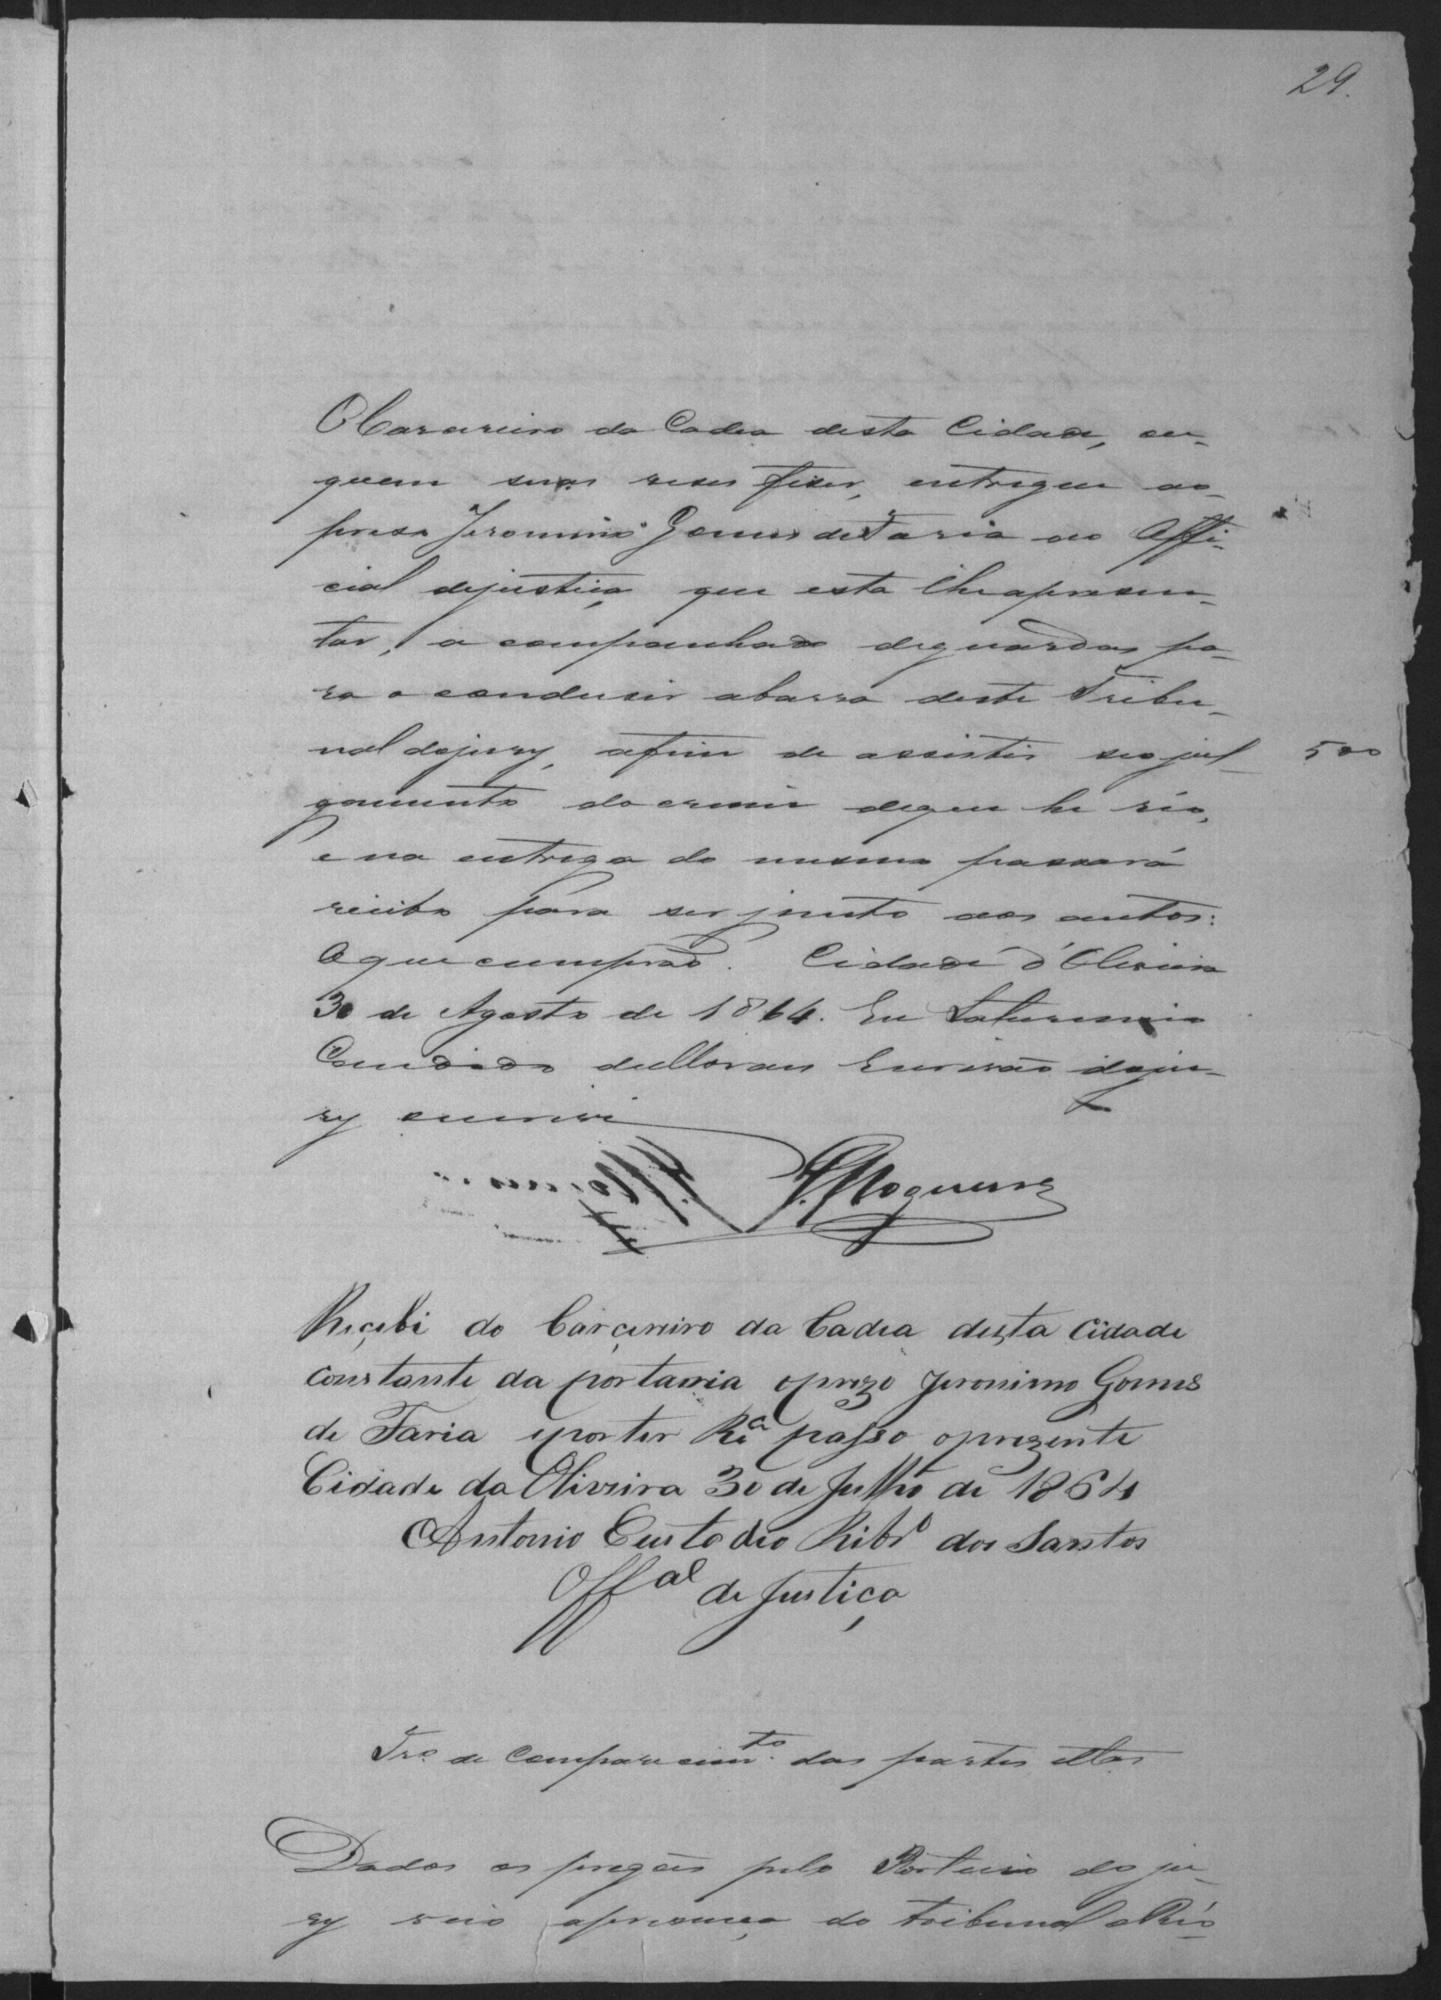 29.
O Carcereiro da Cadea desta Cidade, ou
quem suas veses fizer, entregue ao
preso Jeronimo Gomes de Faria ao Offi-
cial dejustiça que esta lhe apresen-
tar, acompanhado deguardas pa-
ra o condusir abarra deste Tribu-
nal dojury, afim de assistir seojul-
500
gamento do crime deque he réo,
e na entrega do mesmo passará
recibo para ser junto aos autos:
O que cumprão. Cidade d'Oliveira
30 de Agosto de 1864. Eu
Candido deMoraes Escrivão doju-
ry escrevi
Nogueira
Recebi do Carçereiro da Cadea desta Cidade
constante da portaria oprezo Jeronimo Gomes
de Faria eporter Rca passo oprezente
Cidade da Oliveira 30 de Julho de 1864
Antonio Custodio Ribro dos Santos
Offal de Justiça
Tro de Comparecimto das partes etas
Dados os pregões pelo Porteiro do ju-
ry veio apresença do tribunal oRéo